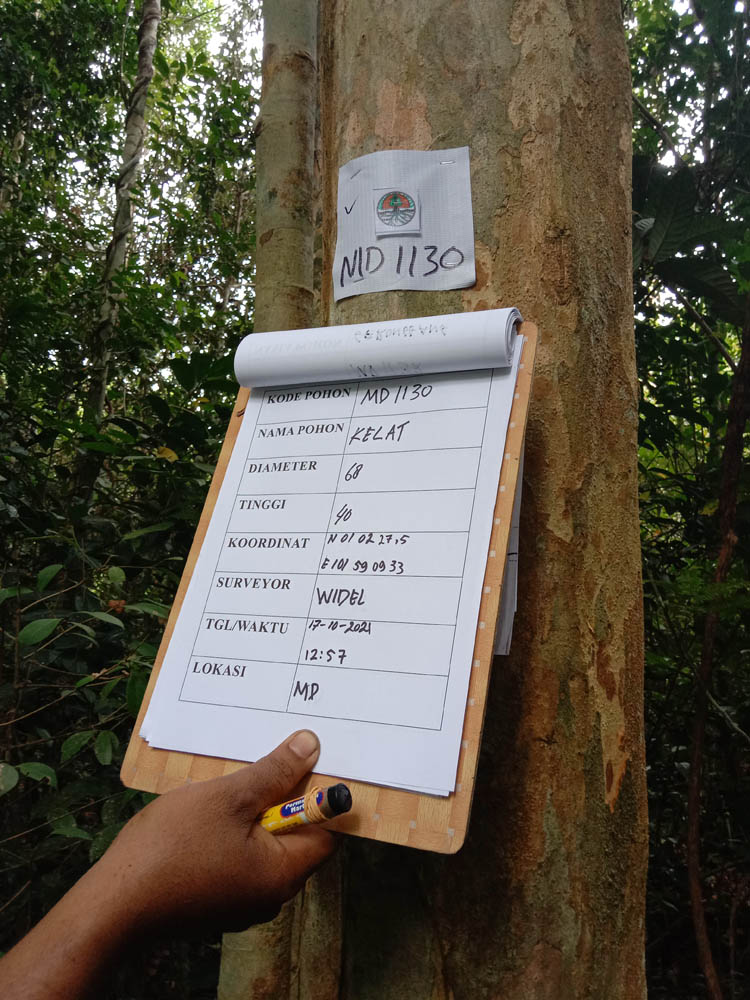 MD 1130
KODE POHON MD 1130
NAMA POHON KELAT
DIAMETER 68
TINGGI 40
KOORDINAT N 01 02 27,5
E 101 59 09 33
SURVEYOR WIDEL
TGL/WAKTU 17-10-2021
12:57
LOKASI MD